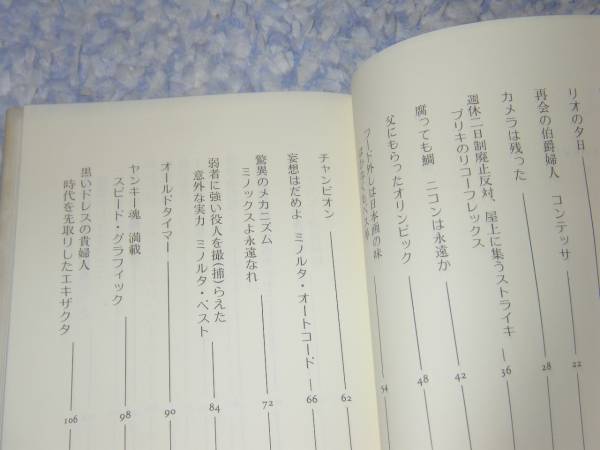 リオの夕日 22
再会の伯爵夫人 コンテッサ 28
カメラは残った 36
週休二日制廃止反対、屋上に集うストライキ
ブリキのリコーフレックス 42
腐っても鯛 ニコンは永遠か 48
父にもらったオリンピック 54
フード外しは日本画の味
チャンピオン 62
妄想はだめよ ミノルタ・オートコード 66
驚異のメカニズム
ミノックスよ永遠なれ 72
弱者に強い役人を撮(捕)らえた
意外な実力 ミノルタ・ベスト 84
オールドタイマー 90
ヤンキー魂 満載
スピード・グラフィック 98
黒いドレスの貴婦人
時代を先取りしたエキザクタ 106